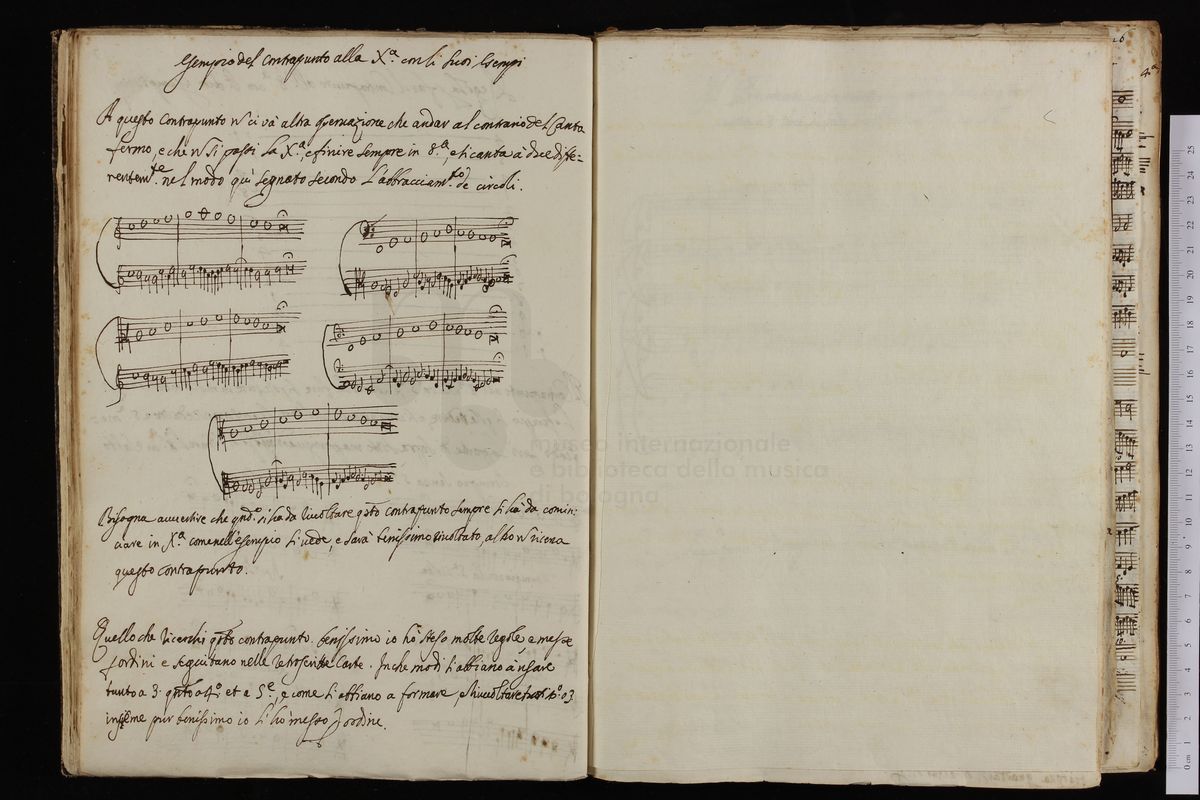 Esempio del Contrapunto alla Xª. con li suoi Esempi
A questo Contrapunto ñ ci và altra osseruazione che andar al contrario del Canto
fermo, e che ñ si passi la Xª, e finire sempre in 8ª, e si canta à due diffe-
rentemte. nel modo qui segnato secondo l'abbracciamto. de circoli.
Bisogna auuertire che qndo. si hà da riuoltare qsto contrapunto sempre si hà da comin-
ciare in Xª. come nell'esempio si uede, e sarà benissimo riuoltato, al
questo contrapunto.
Quello che ricerchi qsto contrapunto. benissimo io hò steso molte regole, e messe
ordini e seguitano nelle retroscritte Carte. In che modi s'abbiano à usare
tanto a 3. qnto a 4º. et a 5e., e come s'abbiano a formare, e riuoltare
insieme pur benissimo io l'hò messo ordine.
museo internazionale
e biblioteca della musica
di bologna
26
4ª
0 cm 1 2 3 4 5 6 7 8 9 10 11 12 13 14 15 16 17 18 19 20 21 22 23 24 25